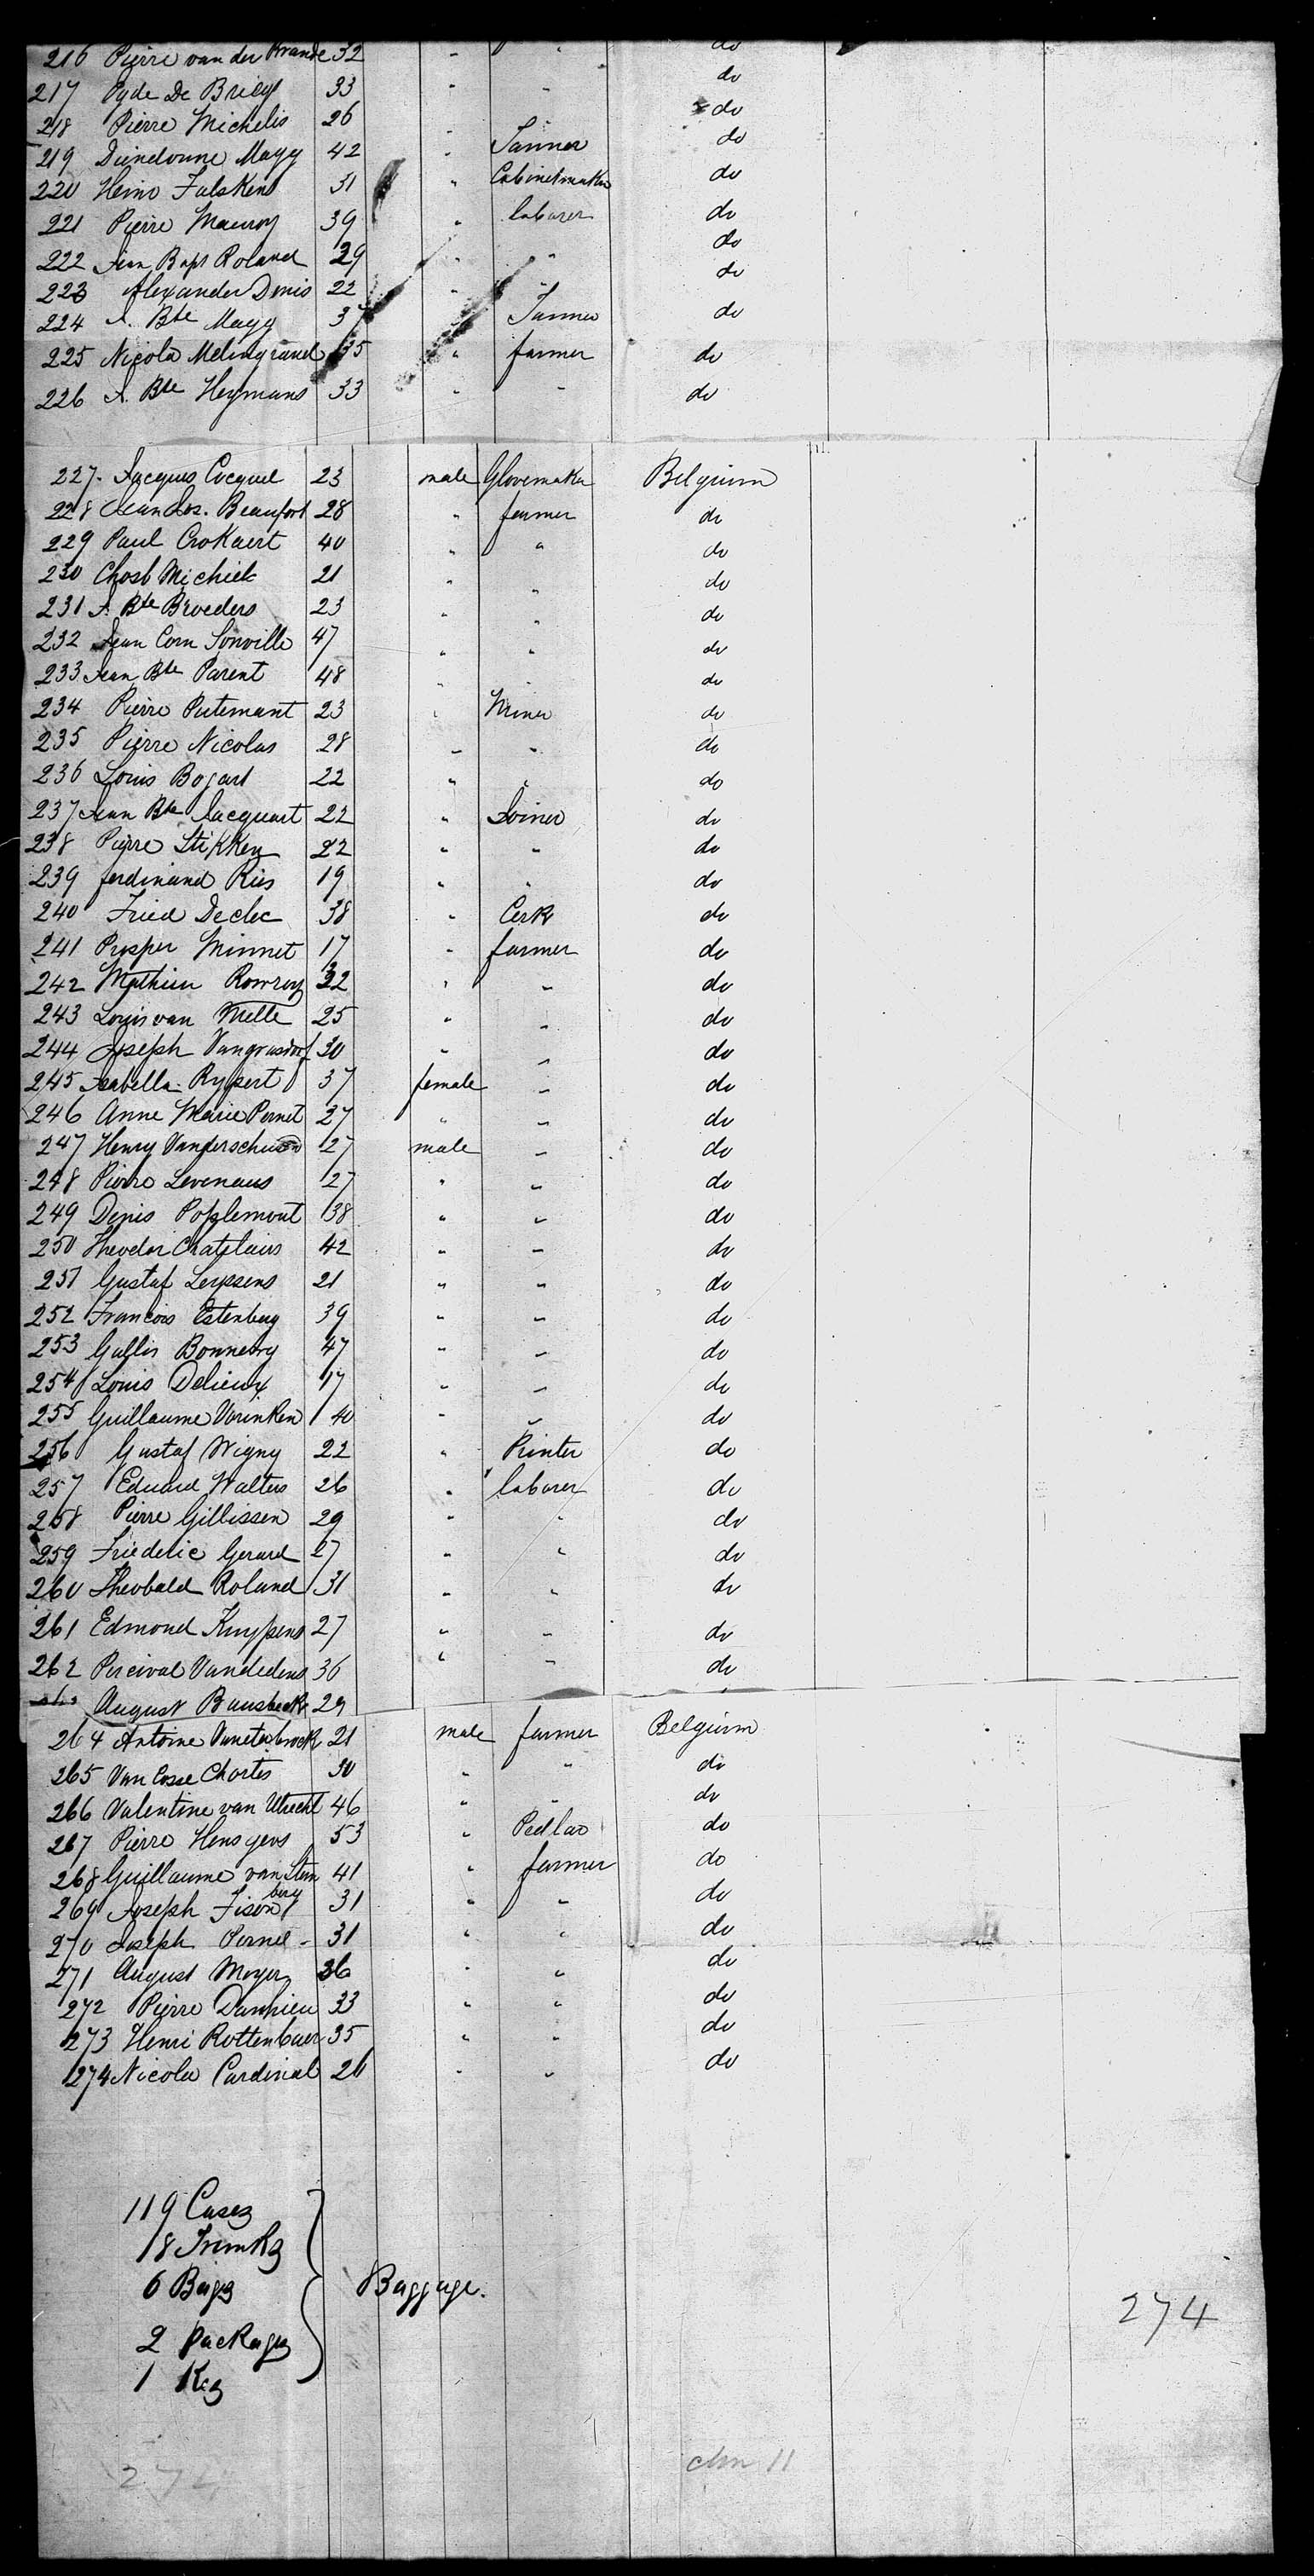 216 Pierre van der Brande 32 " " do
217 Pyde De Bricy 33 " " do
218 Pierre Michelis 26 do
219 Diendonne Magy 42 " Tanner do
220 Henri Falsken 31 " Cabinetmaker do
221 Pierre Mauroy 39 " laborer do
222 Jean Bapt Roland 29 " " do
223 Alexander Denis 22 " " do
224 J. Bte Magy 37 " Tanner do
225 Nicola Melingrand 35 " farmer do
226 J. Bte Heymans 33 " " do
227. Jacques Cocquel 23 male Glovemaker Belgium
228 Jean Jos. Beaufort 28 " farmer do
229 Paul Crokaert 40 " " do
230 Michiels 21 " " do
231 J. Bte Broeders 23 " " do
232 Jean Corn Sonville 47 " " do
233 Jean Bte Parent 48 " " do
234 Pierre Putemant 23 " Miner do
235 Pierre Nicolas 28 " " do
236 Louis Bogart 22 " " do
237 Jean Bte Jacquart 22 " Joiner do
238 Pierre Stikken 22 " " do
239 ferdinand Ries 19 " " do
240 Fried Declec 38 " Cerk do
241 Prosper Minnet 17 " farmer do
242 Mathieu Rowroy 32 " " do
243 Louis van Melle 25 " " do
244 Joseph Vangrasdorf 30 " " do
245 Isabella Rypert 37 female " do
246 Anne Marie Pernet 27 " " do
247 Henry Vanderschuren 27 male " do
248 Pierre Levenaus 27 " " do
249 Denis Popplemont 38 " " do
250 Theodor Chatelains 42 " " do
251 Gustaf Leyssens 21 " " do
252 Francois Estenberg 39 " " do
253 Bonnevry 47 " " do
254 Louis Delieux 17 " " do
255 Guillaume Varinken 40 " " do
256 Gustaf Wigny 22 " Printer do
257 Eduard Walters 26 " laborer do
258 Pierre Gillissen 29 " " do
259 Friederic Gerard 27 " " do
260 Theobald Roland 31 " " do
261 Edmond Kuypens 27 " " do
262 Percival Vandedens 36 " " do
August Bausbeck 29
264 Antoine 21 male farmer Belgium
265 Van Cosse Chartes 30 " " do
266 Valentine van Utrecht 46 " " do
267 Pierre Hensgens 53 " Pedlar do
268 Guillaume van Stein 41 " farmer do
berg
269 Joseph Fison 31 " " do
270 Joseph Pernel - 31 " " do
271 August Meyer 36 " " do
272 Pierre Danhieu 33 " " do
273 Henri Rottenbuer 35 " " do
274 Nicola Cardinal 26 " " do
119 Cases
18 Trunks
6 Bags Baggage.
274
2 packages
1 Keg
274
chn 11